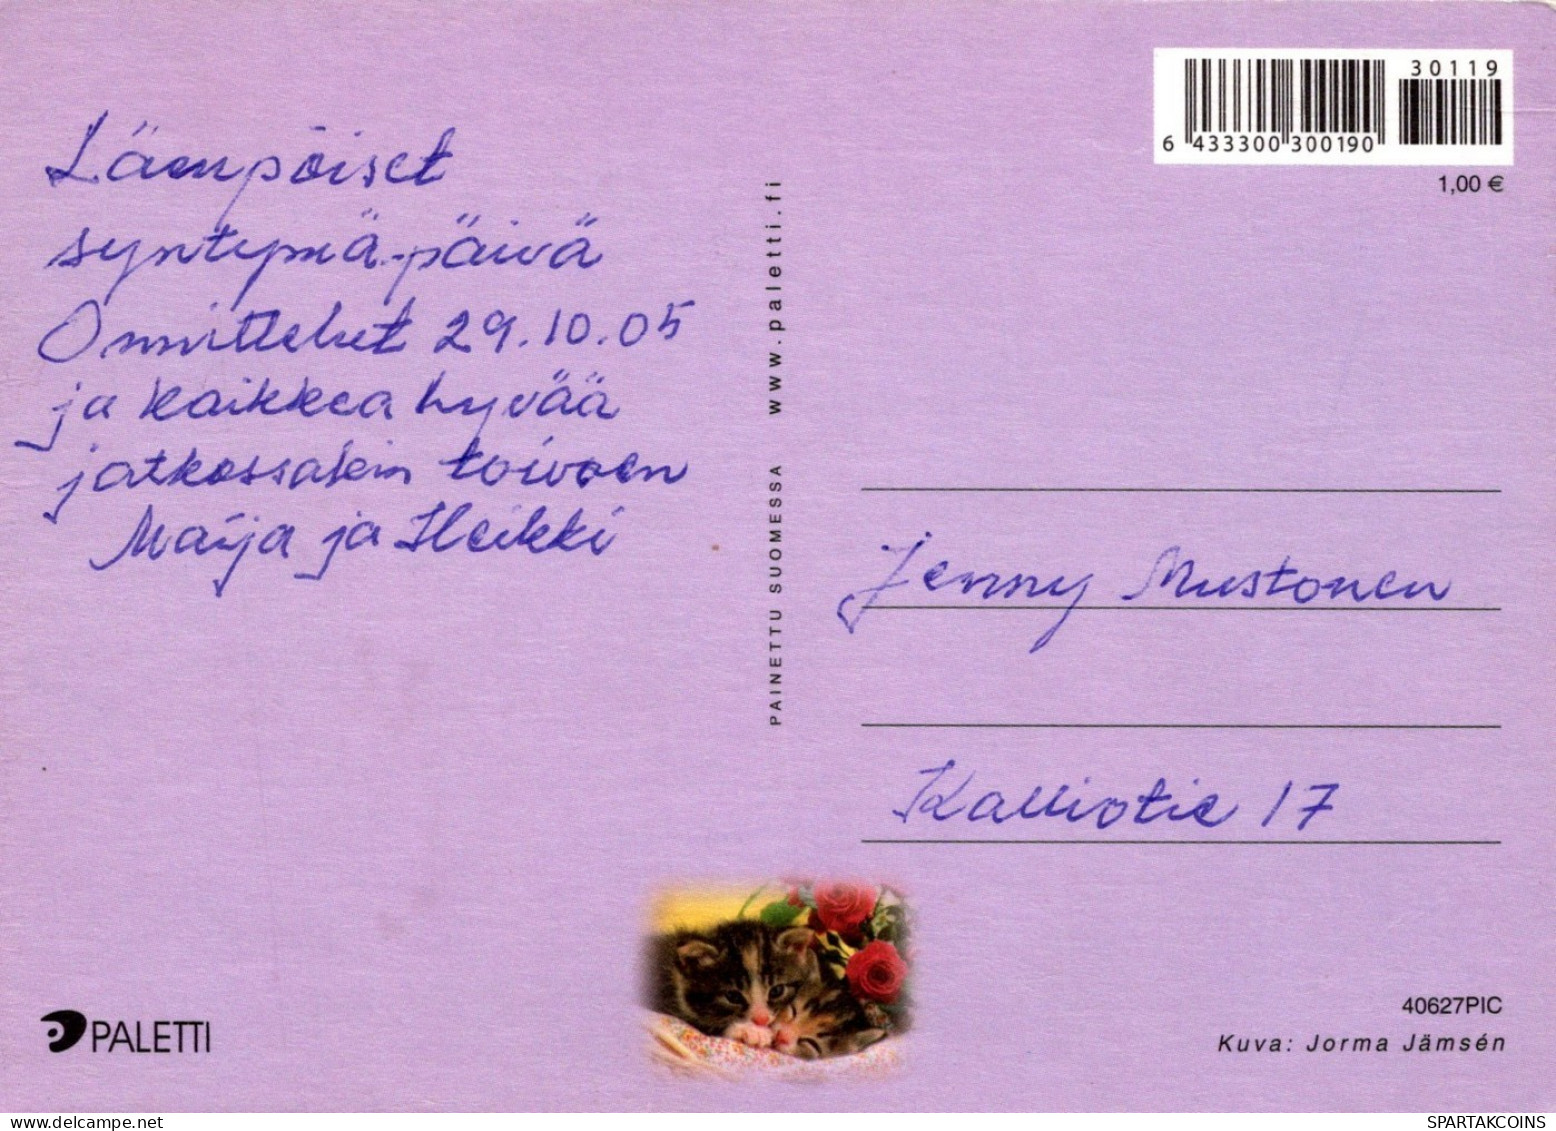 Lämpöiset
syntymä-päivä
Onnittelut 29.10.05
ja kaikkea hyvää
jatkossakin toivoen
Maija ja Heikki
PAINETTU SUOMESSA www.paletti.fi
30119
6 433300 300190
1,00 €
Jenny Mustonen
Kalliotie 17
PALETTI
40627PIC
Kuva: Jorma Jämsén
SPARTAKCOINS